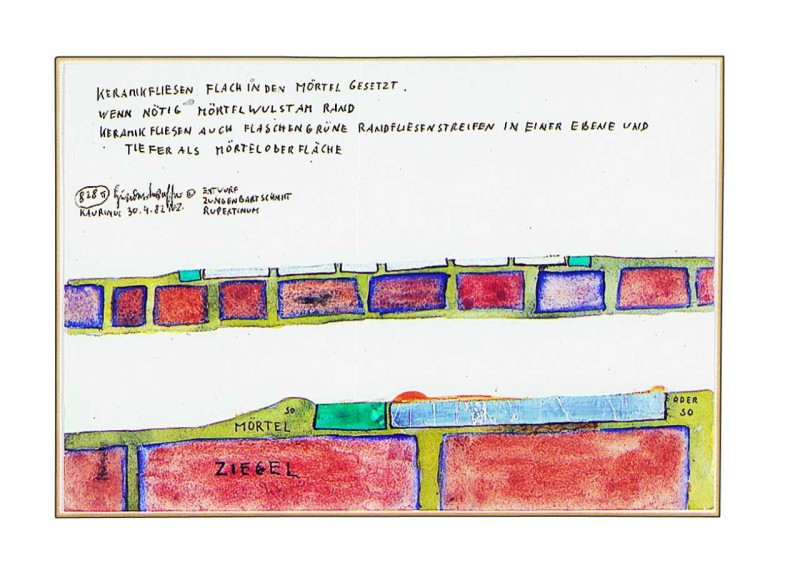 KERAMIKFLIESEN FLACH IN DEN MÖRTEL GESETZT.
WENN NÖTIG MÖRTELWULST AM RAND
KERAMIKFLIESEN AUCH FLASCHENGRÜNE RANDFLIESENSTREIFEN IN EINER EBENE UND
TIEFER ALS MÖRTELOBERFLÄCHE
ENTWURF
ZUNGENBARTSCHNITT
KAURINUI 30.4.82 NZ.
RUPERTINUM
SO
MÖRTEL
ODER
SO
ZIEGEL